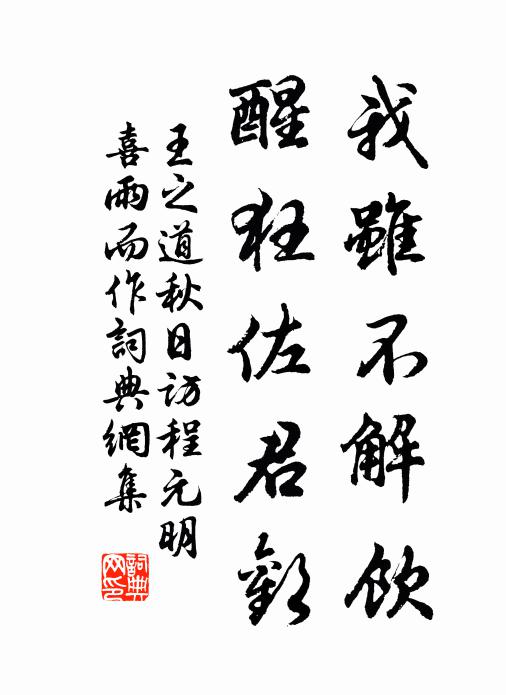 我雖不解飲
醒狂佐君歡
王之道秋日訪程元明
喜雨而作詞典網集
詞典
网印